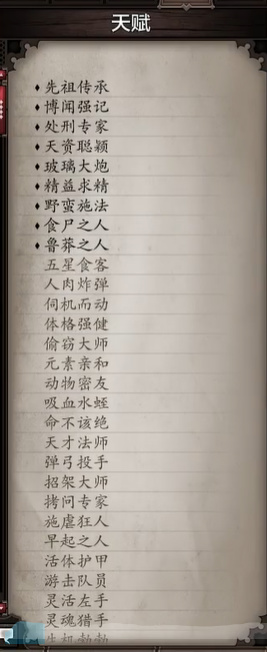 天赋
♦先祖传承
♦博闻强记
♦处刑专家
♦天资聪颖
♦玻璃大炮
♦精益求精
♦野蛮施法
♦食尸之人
♦鲁莽之人
五星食客
人肉炸弹
伺机而动
体格强健
偷窃大师
元素亲和
动物密友
吸血水蛭
命不该绝
天才法师
弹弓投手
招架大师
拷问专家
施虐狂人
早起之人
活体护甲
游击队员
灵活左手
灵魂猎手
生机勃勃